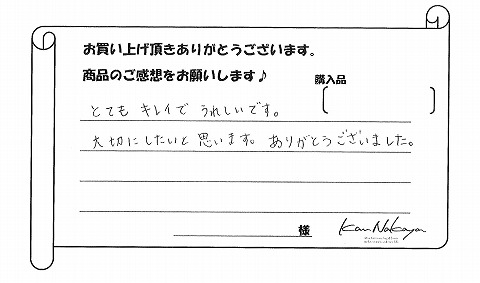 お買い上げ頂きありがとうございます。
商品のご感想をお願いします♪
購入品
とても キレイで うれしいです。
大切にしたいと思います。ありがとうございました。
様
Kan Nakaya